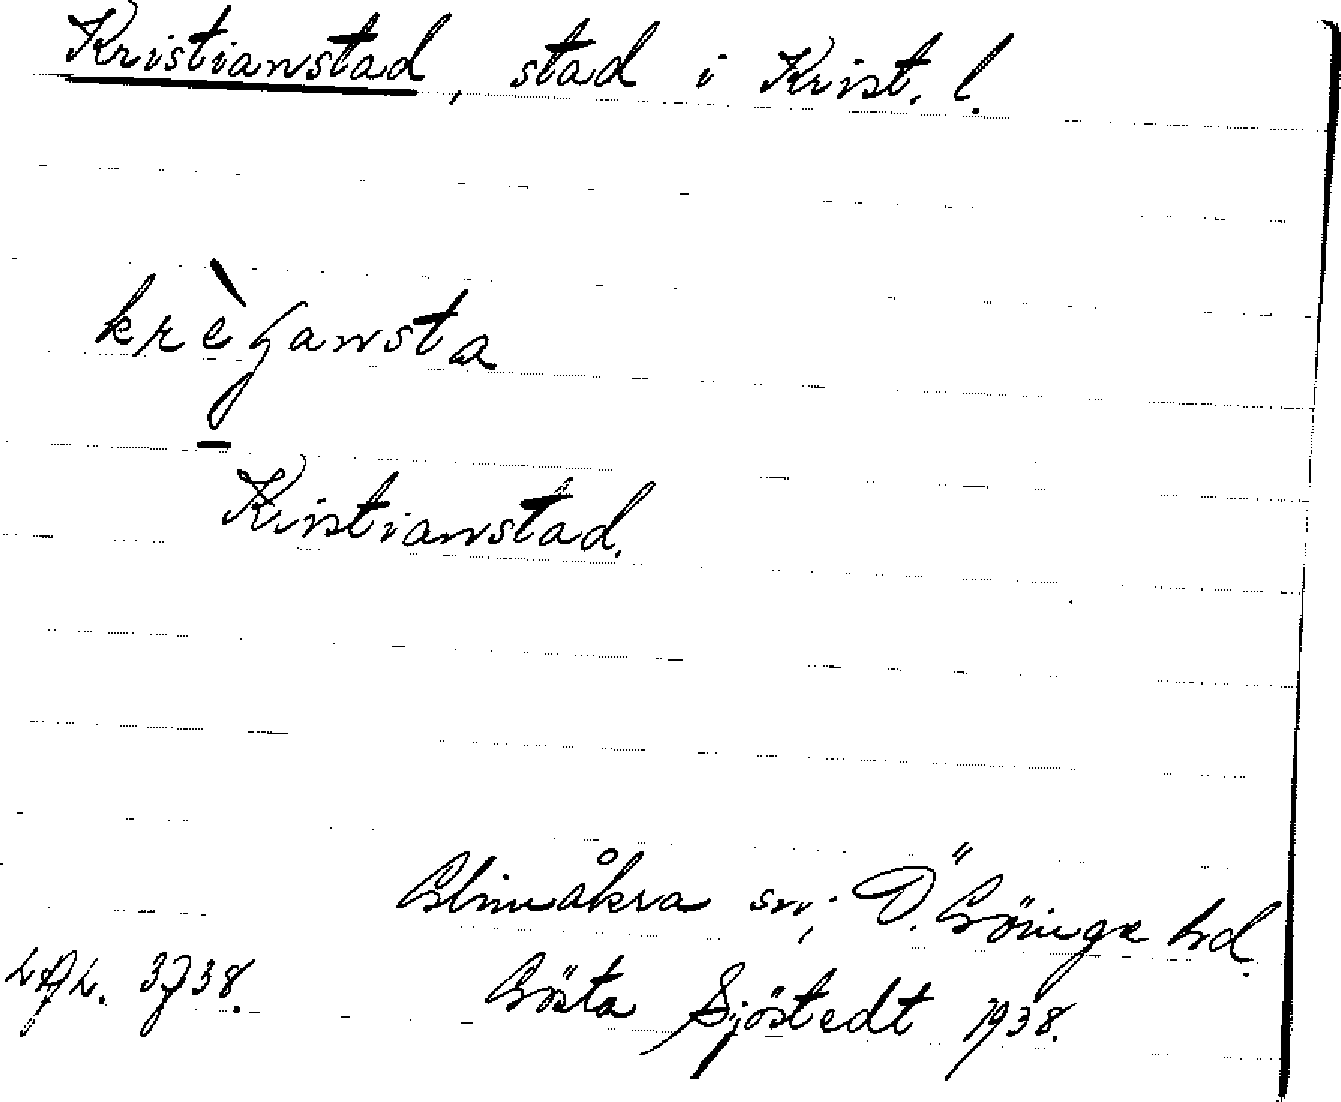 Kristianstad, stad i Krist. l.
krèʒansta
Kristianstad.
Glimåkra sn; Ö. Göinge hd.
LAL. 3738. Gösta Sjöstedt 1938.